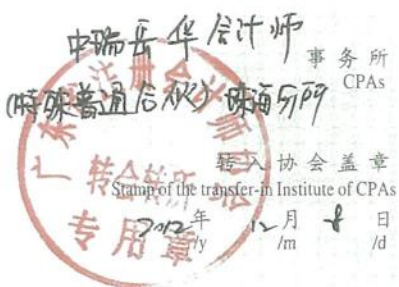 中瑞岳华会计师
事务所
CPAs
(特殊普通合伙)珠海分所
转入协会盖章
Stamp of the transfer-in Institute of CPAs
2012年 12月 8日
/y /m /d
广东省注册会计师协会
转会转所
专用章